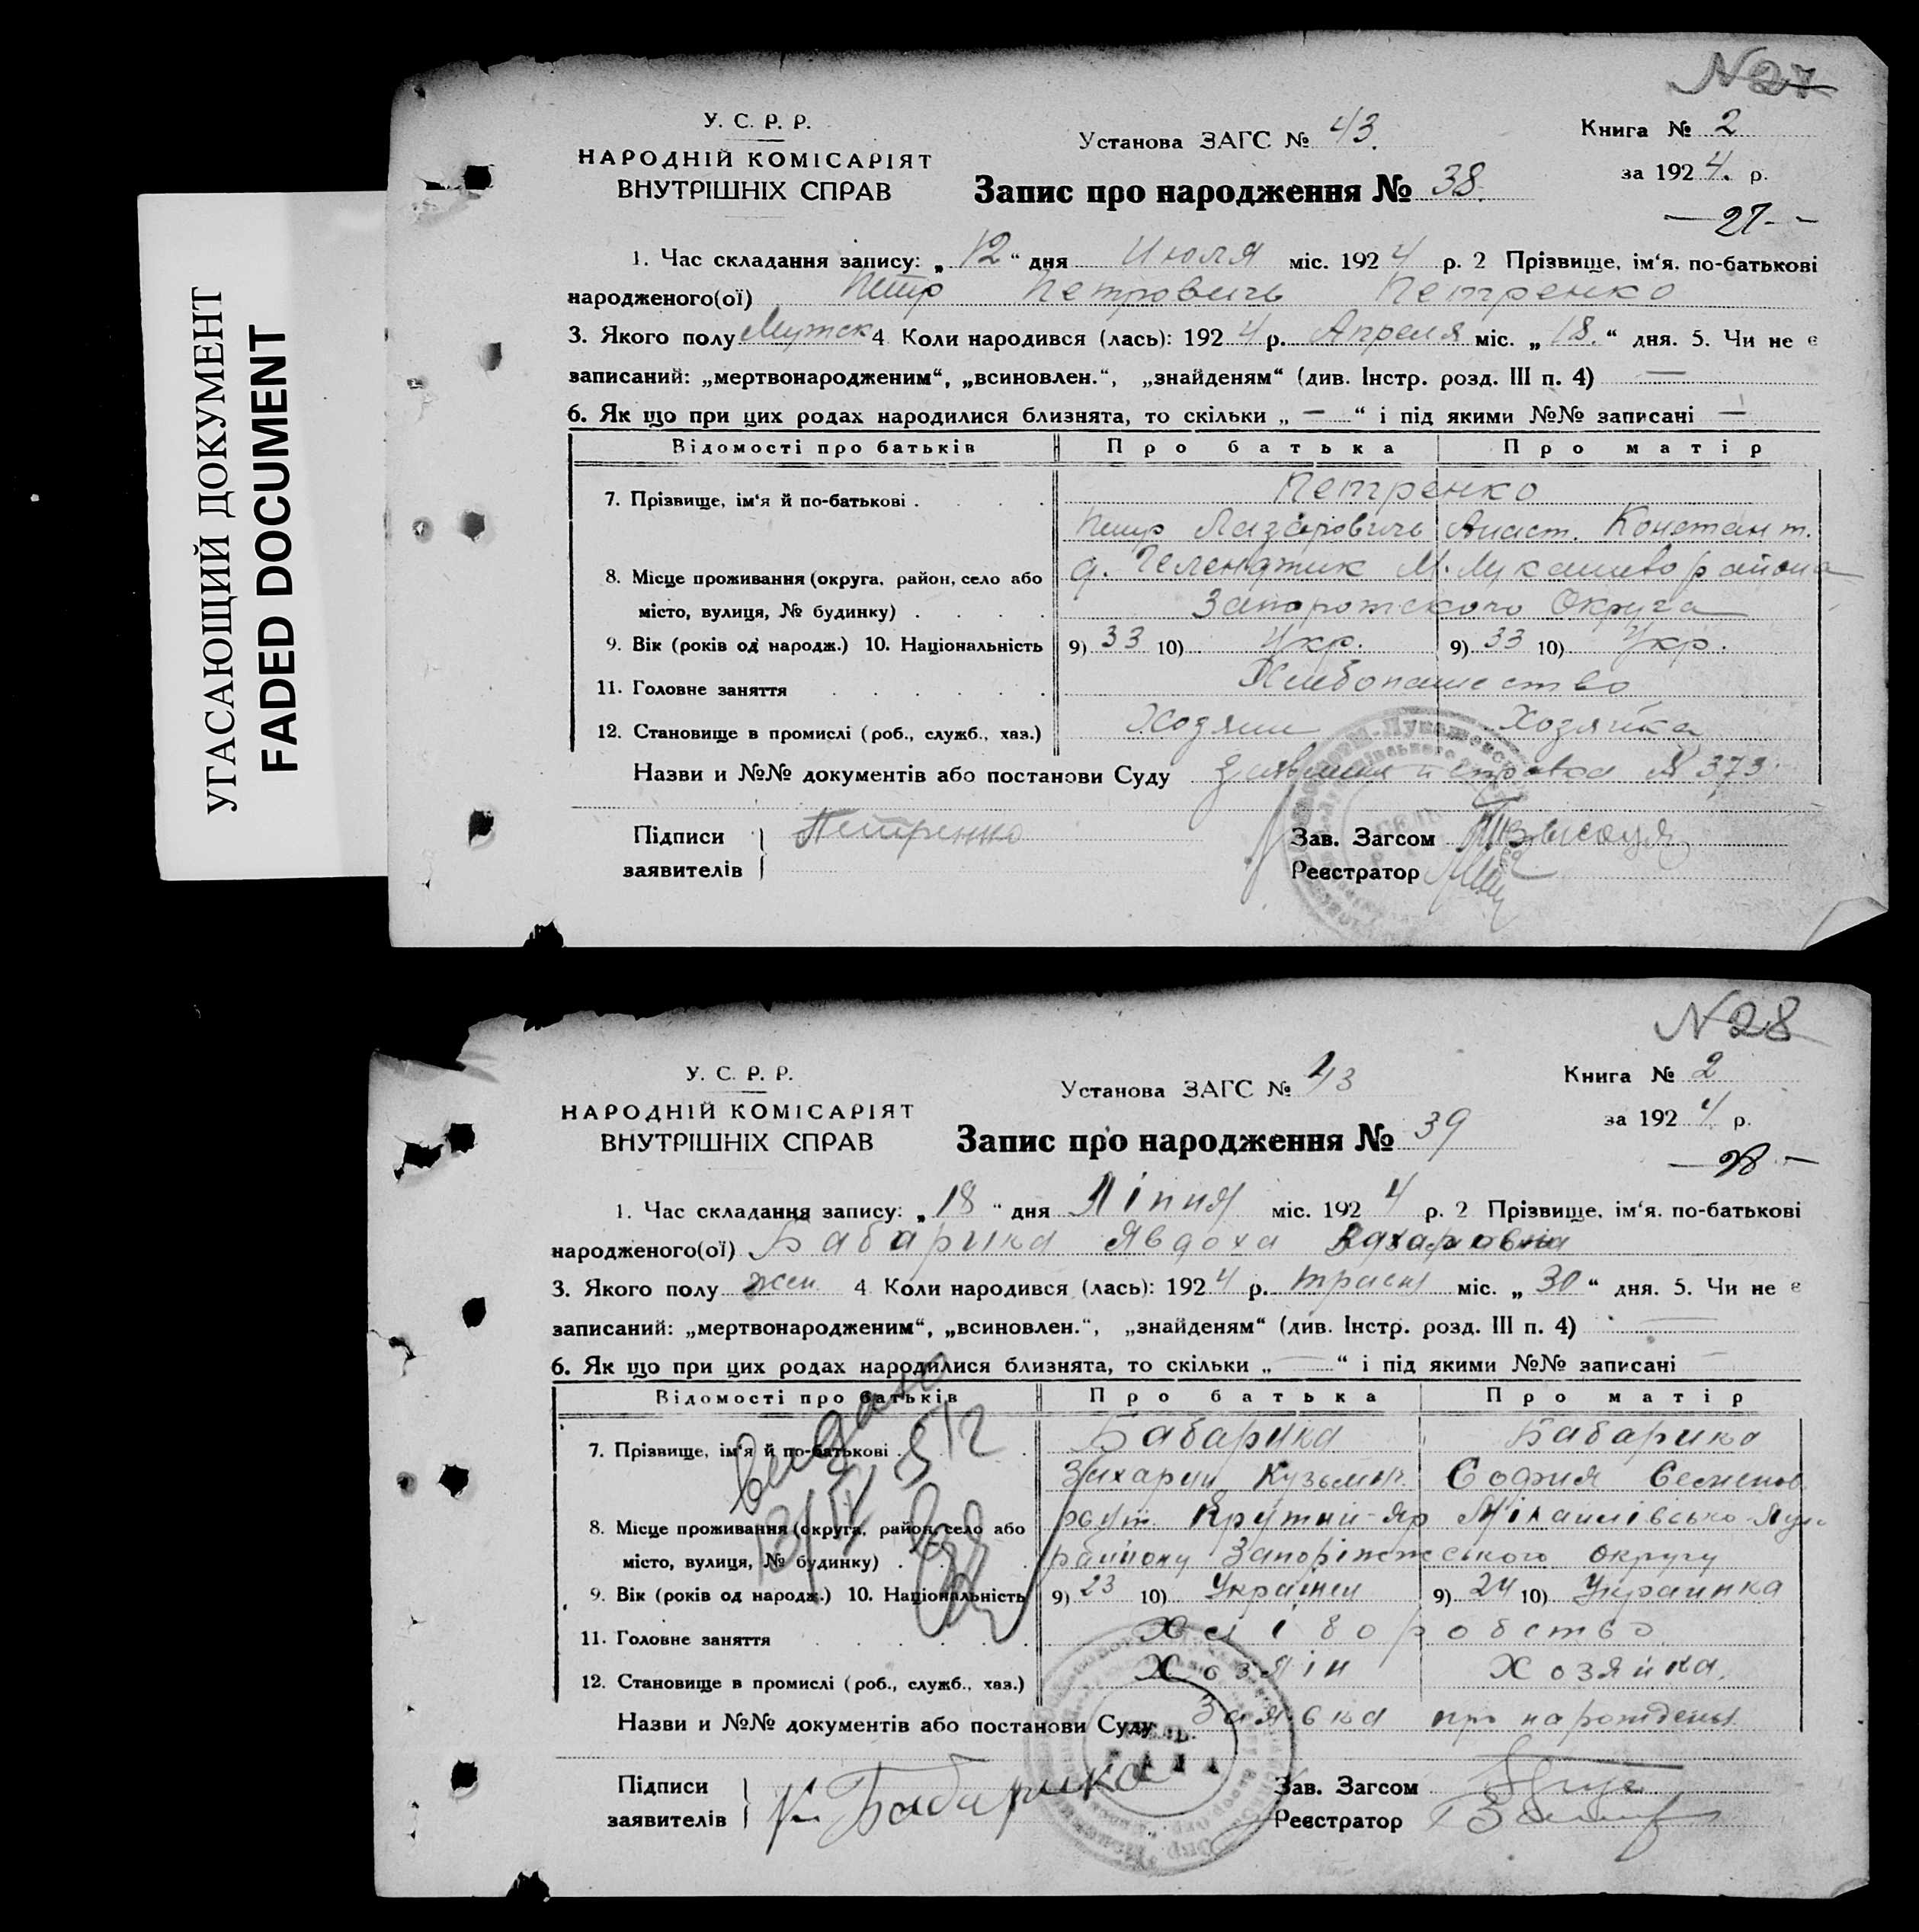 УГАСАЮЩИЙ ДОКУМЕНТ
FADED DOCUMENT
N 27
У. С. Р. Р.
НАРОДНІЙ КОМІСАРІЯТ
ВНУТРІШНІХ СПРАВ
Установа ЗАГС № 43.
Книга № 2
за 1924. р.
Запис про народження № 38.
— 27 - -
1. Час складання запису: „ 12 “ дня Июля міс. 1924 р. 2 Прізвище, ім‘я, по-батькові
народженого(ої) Петр Петровичь Петренко
3. Якого полу Мужск 4 Коли народився (лась): 1924 р. Апреля міс. „ 18. “ дня. 5. Чи не є
записаний: „мертвонародженим“, „всиновлен.“, „знайденям“ (див. Інстр. розд. III п. 4) —
6. Як що при цих родах народилися близнята, то скільки „ — “ і під якими №№ записані —
Відомості про батьків Про батька Про матір
7. Прізвище, ім‘я й по-батькові . Петренко
Петр Лазаровичь Анаст. Констант.
8. Місце проживання (округа, район, село або д. Геленджик М. Лукашево района
місто, вулиця, № будинку) . Запорожского Округа
9. Вік (років од народж.) 10. Національність 9) 33 10) Укр. 9) 33 10) Укр.
11. Головне заняття Хлебопашество
12. Становище в промислі (роб., служб., хаз.) Хозяин Хозяйка
Назви и №№ документів або постанови Суду и справка № 373
Підписи заявителів Петренко
Зав. Загсом
Реєстратор
N 28
У. С. Р. Р.
НАРОДНІЙ КОМІСАРІЯТ
ВНУТРІШНІХ СПРАВ
Установа ЗАГС № 43
Книга № 2
за 1924 р.
Запис про народження № 39
— 28 - —
1. Час складання запису: „ 18 “ дня Ліпня міс. 1924 р. 2 Прізвище, ім‘я, по-батькові
народженого(ої) Бабарика Явдоха Захаровна
3. Якого полу жен 4 Коли народився (лась): 1924 р. траня міс. „ 30 “ дня. 5. Чи не є
записаний: „мертвонародженим“, „всиновлен.“, „знайденям“ (див. Інстр. розд. III п. 4) —
6. Як що при цих родах народилися близнята, то скільки „ — “ і під якими №№ записані —
Відомості про батьків Про батька Про матір
7. Прізвище, ім‘я й по-батькові . Бабарика Бабарика
Захарии Кузьмич. София Семенов
8. Місце проживання (округа, район, село або хут. Крутий-Яр Міхайлівсько-Лука
місто, вулиця, № будинку) . району Запоріжжського округу
9. Вік (років од народж.) 10. Національність 9) 23 10) Українец 9) 24 10) Украинка
11. Головне заняття Хліборобство
12. Становище в промислі (роб., служб., хаз.) Хозяін Хозяйка.
Назви и №№ документів або постанови Суду Заявка про нарождены
Видано
Підписи заявителів К. Бабарика
Зав. Загсом
Реєстратор